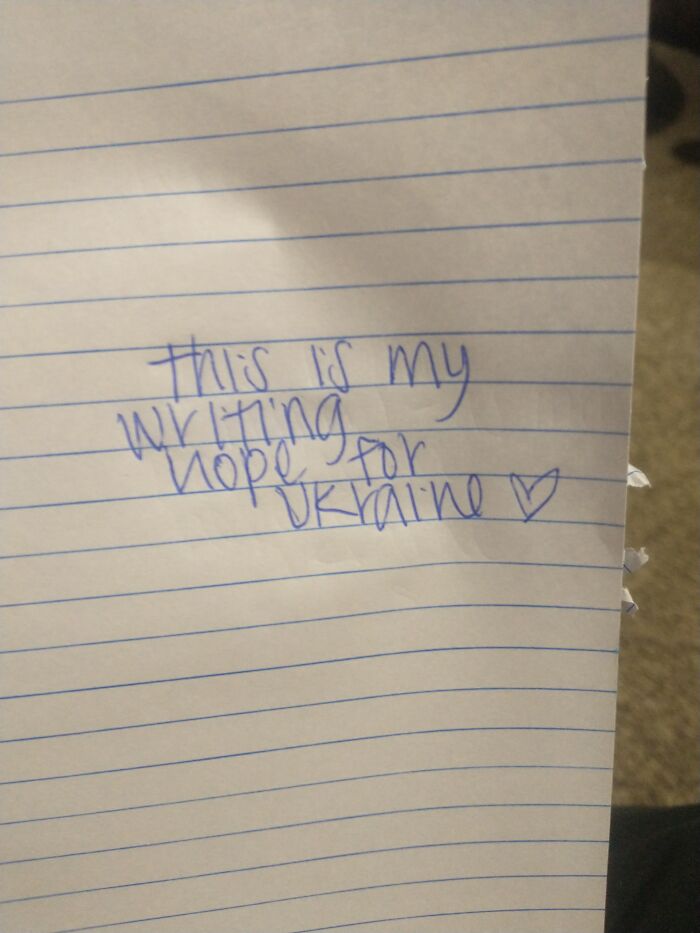 this is my
writing
hope for
Ukraine ♡